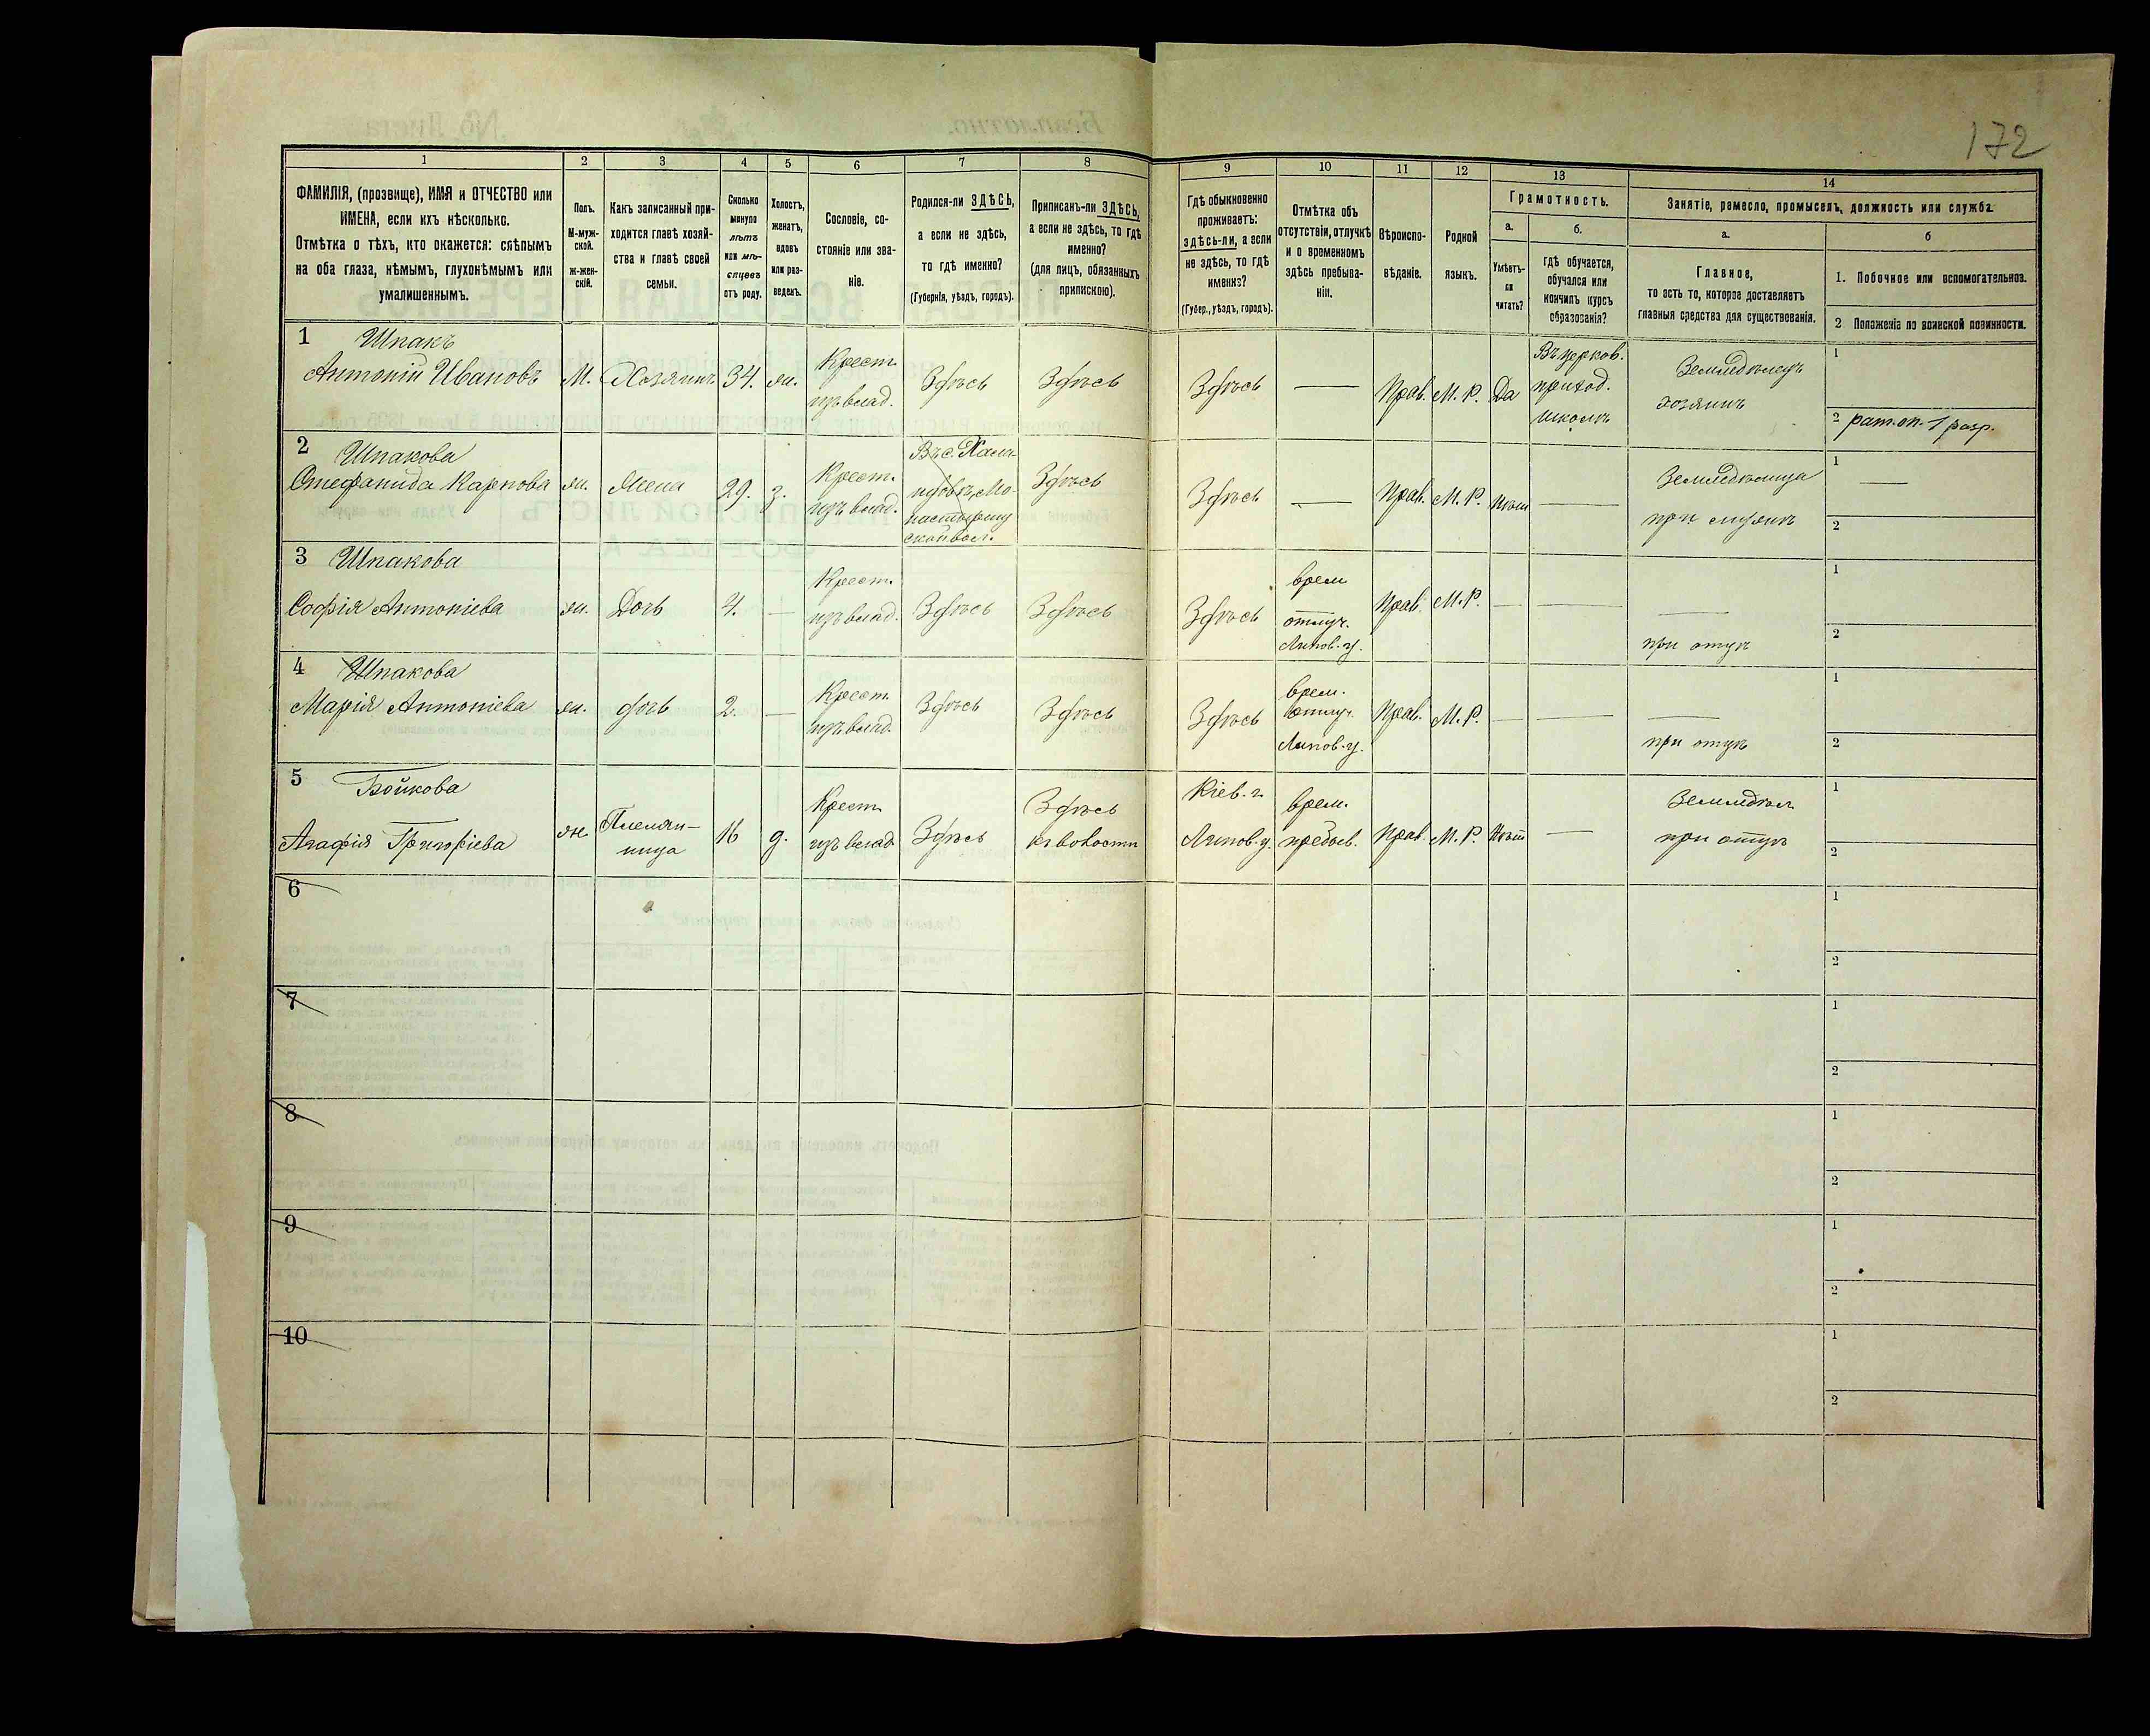 172
1
2
3
4
5
6
7
8
9
10
11
12
13
14
ФАМИЛІЯ, (прозвище), ИМЯ и ОТЧЕСТВО или
ИМЕНА, если ихъ нѣсколько.
Отмѣтка о тѣхъ, кто окажется: слѣпымъ
на оба глаза, нѣмымъ, глухонѣмымъ или
умалишеннымъ.
Полъ.
М-муж-
ской.
ж-жен-
скій.
Какъ записанный при-
ходится главѣ хозяй-
ства и главѣ своей
семьи.
Сколько
минуло
лѣтъ
или мѣ-
сяцевъ
отъ роду.
Холостъ,
женатъ,
вдовъ
или раз-
веденъ.
Сословіе, со-
стояніе или зва-
ніе.
Родился-ли ЗДѢСЬ,
а если не здѣсь,
то гдѣ именно?
(Губернія, уѣздъ, городъ).
Приписанъ-ли ЗДѢСЬ,
а если не здѣсь, то гдѣ
именно?
(для лицъ, обязанныхъ
припискою).
Гдѣ обыкновенно
проживаетъ:
здѣсь-ли, а если
не здѣсь, то гдѣ
именно?
(Губер., уѣздъ, городъ).
Отмѣтка объ
отсутствіи, отлучкѣ
и о временномъ
здѣсь пребыва-
ніи.
Вѣроиспо-
вѣданіе.
Родной
языкъ.
Грамотность.
а.
Умѣетъ-
ли
читать?
б.
гдѣ обучается,
обучался или
кончилъ курсъ
образованія?
Занятіе, ремесло, промыселъ, должность или служба.
а.
Главное,
то есть то, которое доставляетъ
главныя средства для существованія.
б
1. Побочное или вспомогательное.
2 Положеніе по воинской повинности.
1 Шпакъ
Антоній Ивановъ
М.
Хозяинъ
34.
ж.
Крест.
изъ влад.
Здѣсь
Здѣсь
Здѣсь
—
Прав.
М. Р.
Да
Въ церков.
приход.
школѣ
Земледѣлецъ
хозяинъ
1
2 рат. оп. 1 разр.
2 Шпакова
Стефанида Карпова
ж.
Жена
29.
з.
Крест.
изъ влад.
Здѣсь
Здѣсь
—
Прав.
М. Р.
Нѣтъ
—
Земледѣлица
при мужѣ
1 —
2
3 Шпакова
Софія Антоніева
ж.
Дочь
4.
—
Крест.
изъ влад.
Здѣсь
Здѣсь
Здѣсь
врем
отлуч.
Липов. у.
Прав.
М. Р.
—
—
—
при отцѣ
1
2
4 Шпакова
Марія Антоніева
ж.
дочь
2.
—
Крест.
изъ влад.
Здѣсь
Здѣсь
Здѣсь
врем.
отлуч.
Липов. у.
Прав.
М. Р.
—
—
—
при отцѣ
1
2
5 Бойкова
Агафія Григоріева
ж.
Племян-
ница
16
д.
Крест
изъ влад.
Здѣсь
Здѣсь
къ волости
Кіев. г.
Липов. у.
врем.
пребыв.
Прав.
М. Р.
Нѣтъ
—
Земледѣл
при отцѣ
1
2
6
1
2
7
1
2
8
1
2
9
1
2
10
1
2